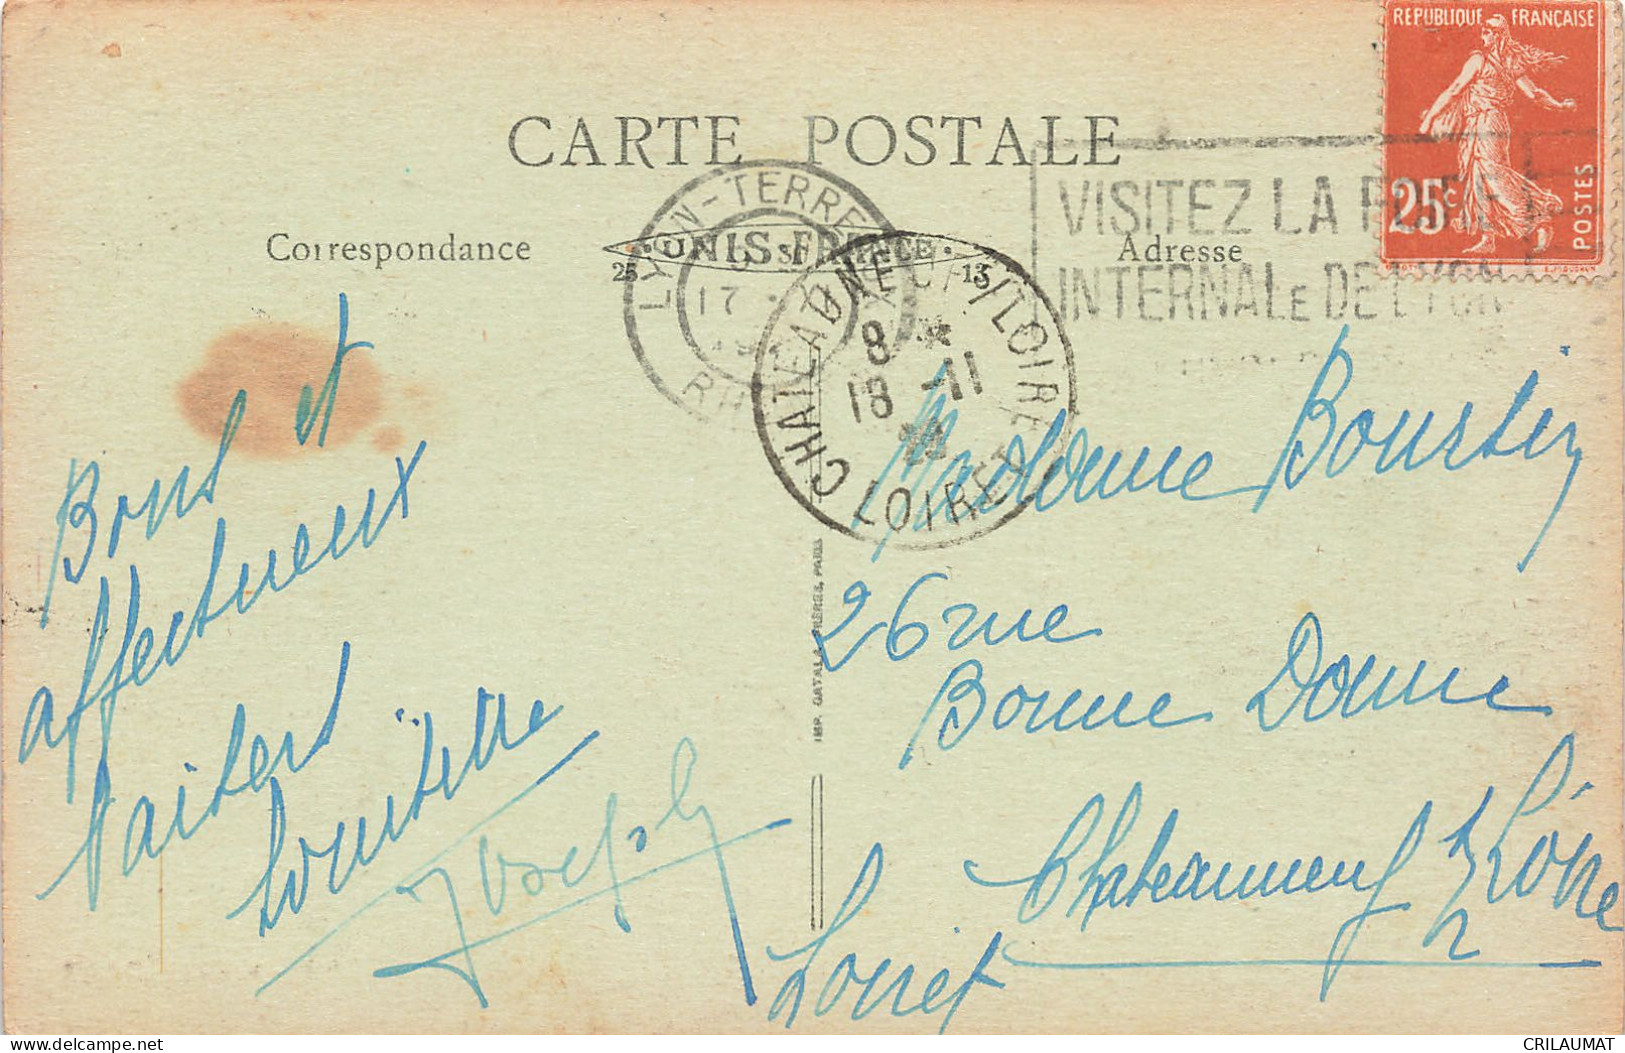 REPUBLIQUE FRANÇAISE
25c
POSTES
CARTE POSTALE
Correspondance
UNIS-FRANCE
25
13
Adresse
LYON-TERRE
RH
17
VISITEZ LA FOIRE
INTERNALE DE LYON
CHATEAUNEUF S/LOIRE
LOIRET
8
18 -11
Bons et
affectueux
baisers
Louisette
Joseph
Madame Boursin
26 rue
Bonne Dame
Chateauneuf s/ Loire
Loiret
IMP. CATALA FRÈRES, PARIS
delcampe.net
CRILAUMAT